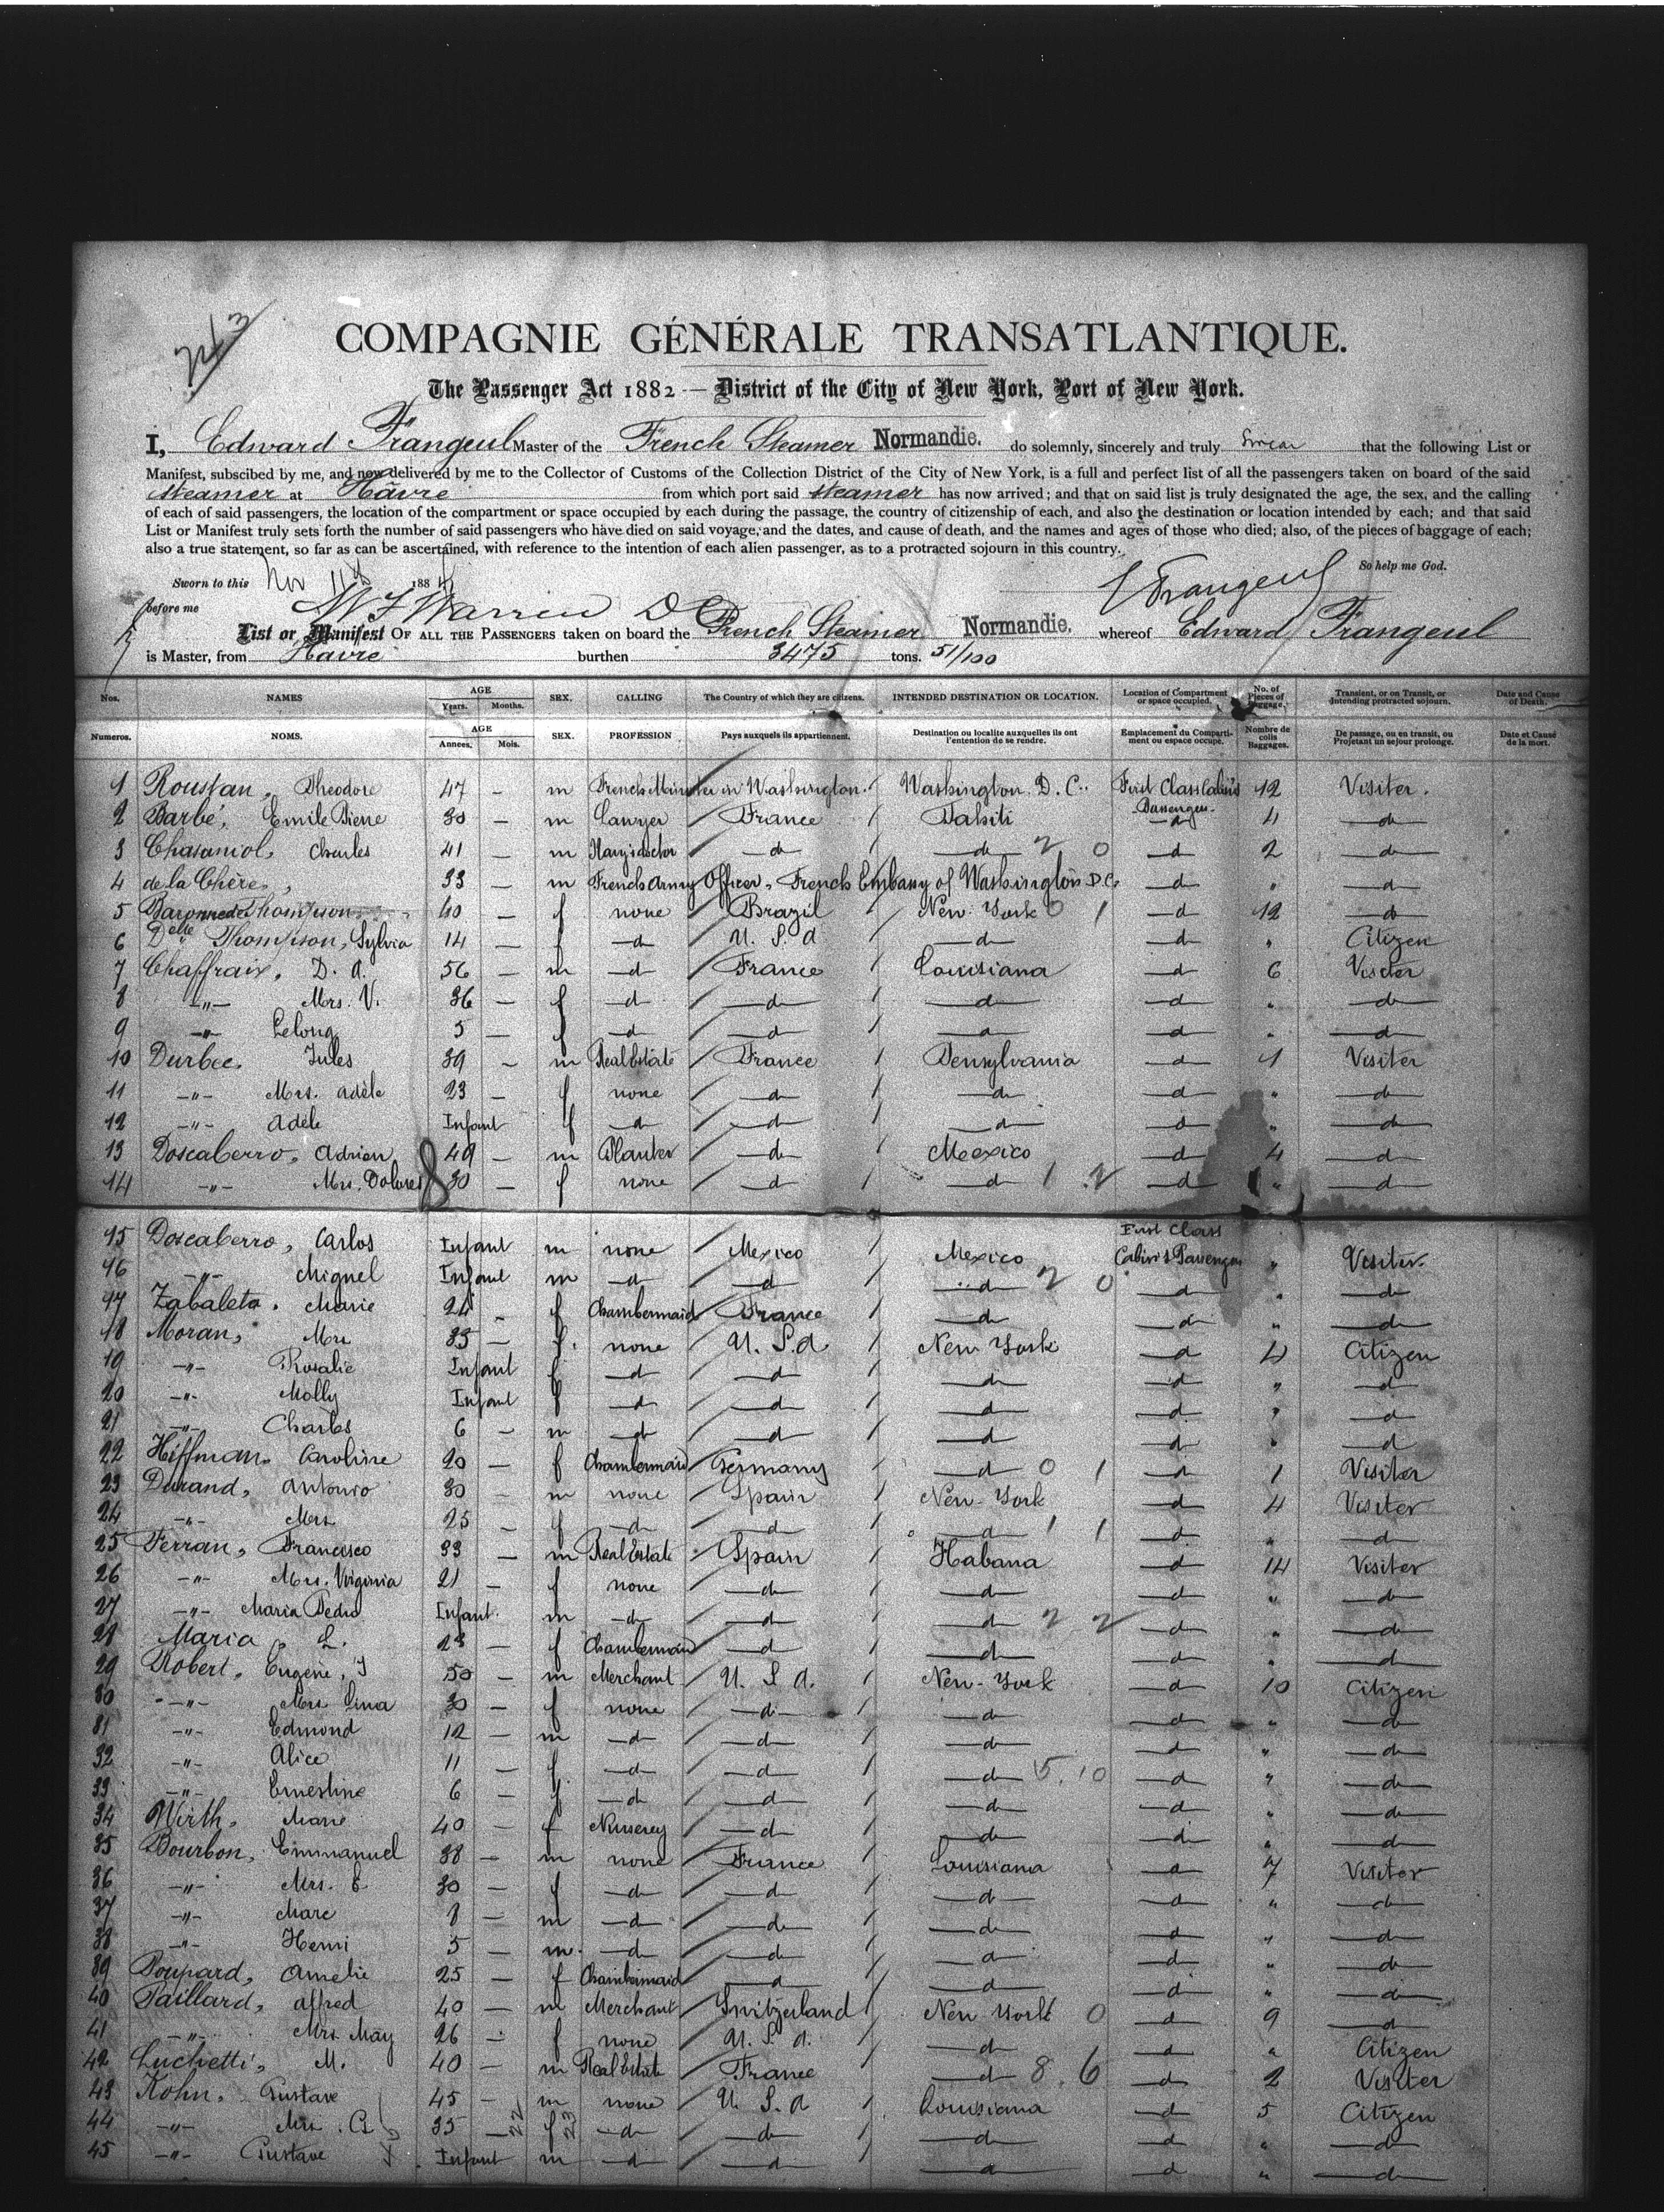 243
COMPAGNIE GÉNÉRALE TRANSATLANTIQUE.
The Passenger Act 1882 — District of the City of New York, Port of New York.
I, Edward Frangeul Master of the French Steamer Normandie. do solemnly, sincerely and truly Swear that the following List or
Manifest, subscibed by me, and now delivered by me to the Collector of Customs of the Collection District of the City of New York, is a full and perfect list of all the passengers taken on board of the said
steamer at Hâvre from which port said steamer has now arrived; and that on said list is truly designated the age, the sex, and the calling
of each of said passengers, the location of the compartment or space occupied by each during the passage, the country of citizenship of each, and also the destination or location intended by each; and that said
List or Manifest truly sets forth the number of said passengers who have died on said voyage, and the dates, and cause of death, and the names and ages of those who died; also, of the pieces of baggage of each;
also a true statement, so far as can be ascertained, with reference to the intention of each alien passenger, as to a protracted sojourn in this country.
So help me God.
Sworn to this Nov 11 188
before me W F Warren D C EFrangeul
List or Manifest OF ALL THE PASSENGERS taken on board the French Steamer Normandie. whereof Edward Frangeul
is Master, from Havre burthen 3475 tons. 51/100
Nos. NAMES AGE Years. Months. SEX. CALLING The Country of which they are citizens. INTENDED DESTINATION OR LOCATION. Location of Compartment or space occupied. No. of Pieces of Baggage. Transient, or on Transit, or intending protracted sojourn. Date and Cause of Death.
Numeros. NOMS. AGE Annees. Mois. SEX. PROFESSION Pays auxquels ils appartiennent. Destination ou localite auxquelles ils ont l'entention de se rendre. Emplacement du Comparti-ment ou espace occupé. Nombre de colis Baggages. De passage, ou en transit, ou Projetant un sejour prolonge. Date et Cause de la mort.
1 Roustan, Theodore 47 — m French Minister in Washington. Washington. D. C. First Class Cabin's Passengers 12 Visiter.
2 Barbé, Emile Pierre 30 — m Lawyer France Tahiti —d— 4 —d—
3 Chasaniol, Charles 41 — m —d— —d— 2 0 —d— 2 —d—
4 de la Chère, 33 — m French Army Officer, French Embany of Washington D.C. —d— " —d—
5 Baronne de Thompson 40 — f none Brazil New-York 0 1 —d— 12 —d—
6 Delle Thompson, Sylvia 14 — f —d U. S. A —d— —d— " Citizen
7 Chaffraix, D. A. 56 — m —d France Louisiana —d 6 Visiter
8 —"— Mrs. V. 36 — f —d —d— —d— —d— " —d—
9 —"— Lelong 5 — f —d —d— —d— —d— " —d
10 Durbec, Jules 39 — m Real Estate France Pensylvania —d 1 Visiter
11 —"— Mrs. Adèle 23 — f none —d— —d— —d " —d—
12 —"— Adèle Infant f —d —d— —d— —d " —d—
13 Doscaberro, Adrien 49 — m Planter —d— Mexico —d— 4 —d—
14 —"— Mrs. Dolores 30 — f none —d —d 1 2 —d— " —d—
15 Doscaberro, Carlos Infant m none Mexico Mexico First Class Cabin's Passengers " Visiter
16 —"— Miguel Infant m —d —d —d 2 0 —d— " —d—
17 Zabaleta, Marie 24 — f Chambermaid France —d— —d— " —d—
18 Moran, Mrs 35 — f. none U. S. A New York —d 4 Citizen
19 —"— Rosalie Infant f —d —d— —d— —d " —d—
20 —"— Molly Infant f —d —d— —d —d " —d
21 —"— Charles 6 — m —d— —d— —d —d " —d
22 Hiffman, Caroline 20 — f Chambermaid Germany —d— 0 1 —d 1 Visiter
23 Durand, Antonio 30 — m none Spain New-York —d 4 Visiter
24 —"— Mrs 25 — f —d— —d— —d 1 1 —d— " —d—
25 Ferran, Francisco 33 — m Real Estate Spain Habana —d 14 Visiter
26 —"— Mrs. Virginia 21 — f none —d— —d— —d— " —d—
27 —"— Maria Pedro Infant. m —d— —d— —d 2 2 —d— " —d—
28 Maria, L. 23 — f Chambermaid —d —d— —d— " —d—
29 Robert, Eugene, J 50 — m Merchant U. S. A. New-York —d 10 Citizen
30 —"— Mrs Lina 30 — f none —d— —d —d " —d—
31 —"— Edmond 12 — m —d— —d— —d— —d " —d—
32 —"— Alice 11 — f —d— —d— —d 5.10 —d " —d—
33 —"— Ernestine 6 — f —d— —d— —d— —d " —d—
34 Wirth, Marie 40 — f Nurserey —d— —d— —d— " —d
35 Bourbon, Emmanuel 38 — m none France Louisiana —d 7 Visiter
36 —"— Mrs. E 30 — f —d— —d— —d— —d " —d—
37 —"— Marc 8 — m —d— —d— —d— —d " —d—
38 —"— Henri 5 — m. —d— —d— —d —d " —d—
39 Poupard, Amélie 25 — f Chambermaid —d —d —d " —d—
40 Paillard, Alfred 40 — m Merchant Switzerland New York 0 —d 9 —d
41 —"— Mrs. May 26 — f none U. S. A. —d— —d " Citizen
42 Luchetti, M. 40 — m Real Estate France —d 8.6 —d 2 Visiter
43 Kohn, Gustave 45 — m none U. S. A Louisiana —d 5 Citizen
44 —"— Mrs. G 35 — f —d —d— —d— —d " —d—
45 —"— Gustave Infant m —d —d— —d —d " —d—